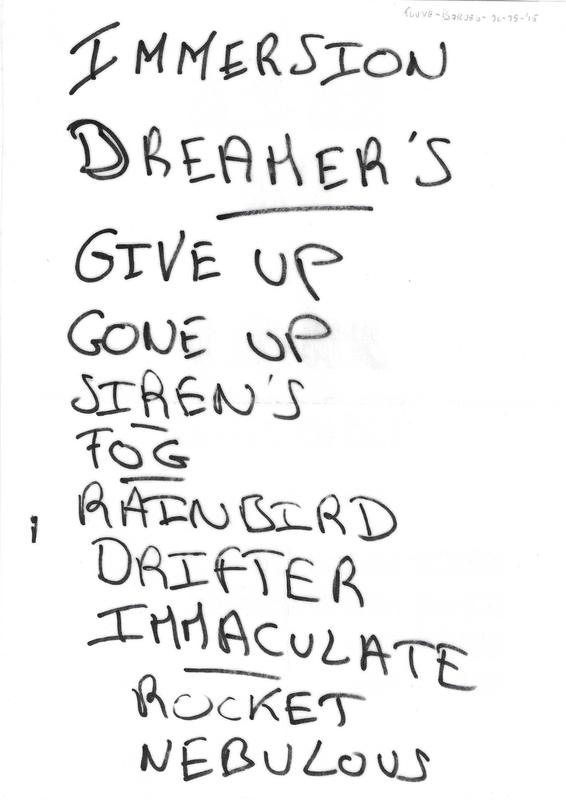 IMMERSION
DREAMER'S
GIVE UP
GONE UP
SIREN'S
FOG
RAINBIRD
DRIFTER
IMMACULATE
ROCKET
NEBULOUS